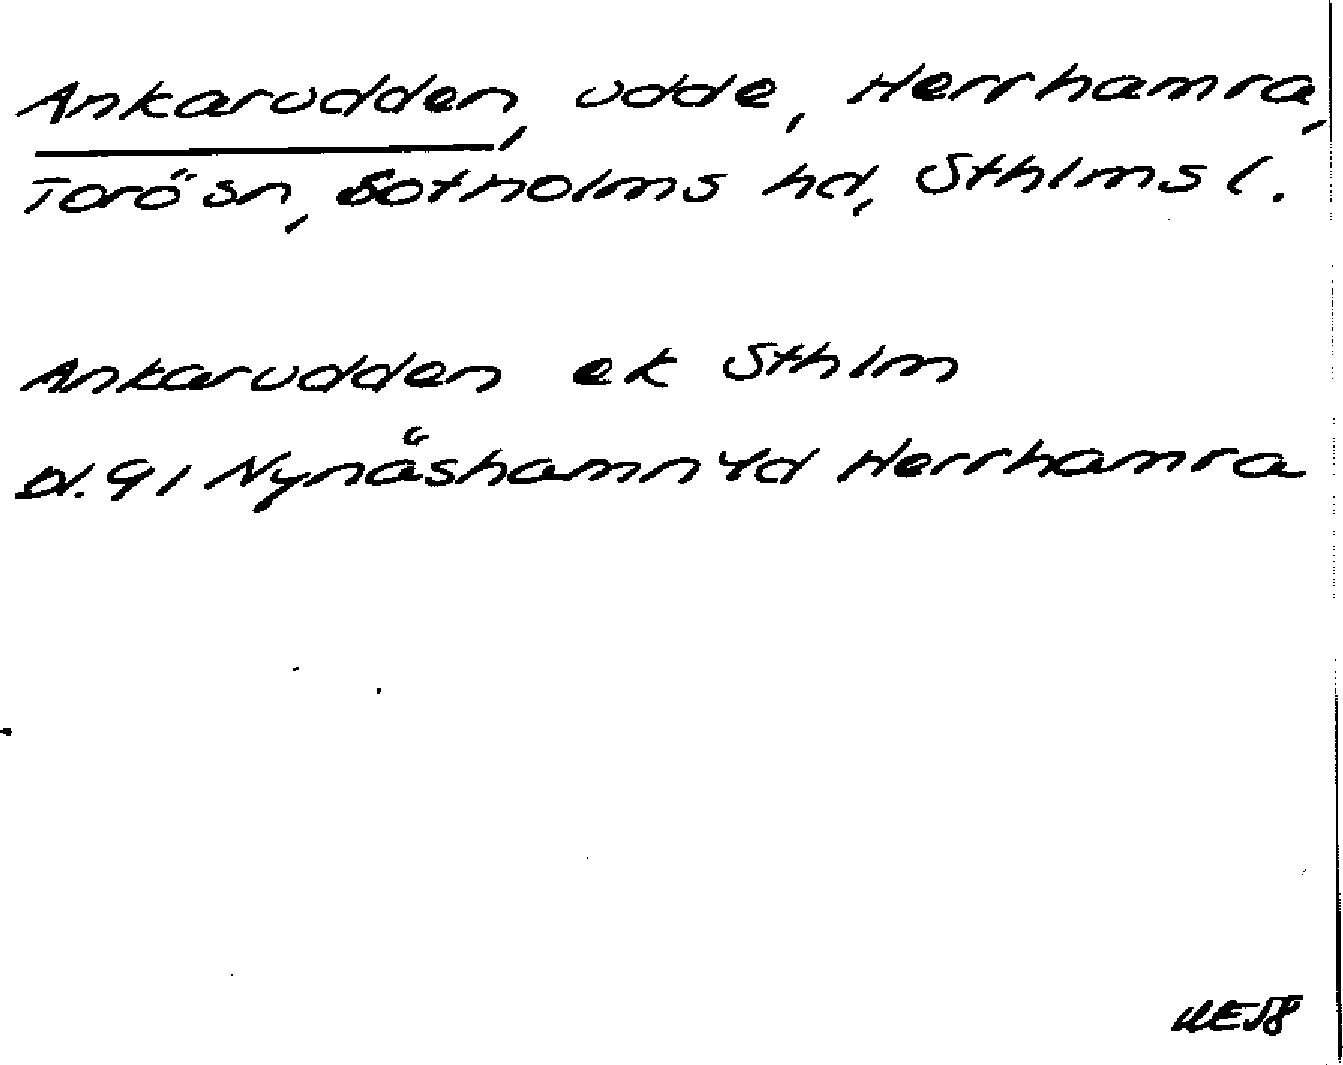 Ankarudden, udde, Herrhamra,
Torö sn, Sotholms hd, Sthlms l.
Ankarudden ek Sthlm
Bl. 91 Nynäshamn Yd Herrhamra